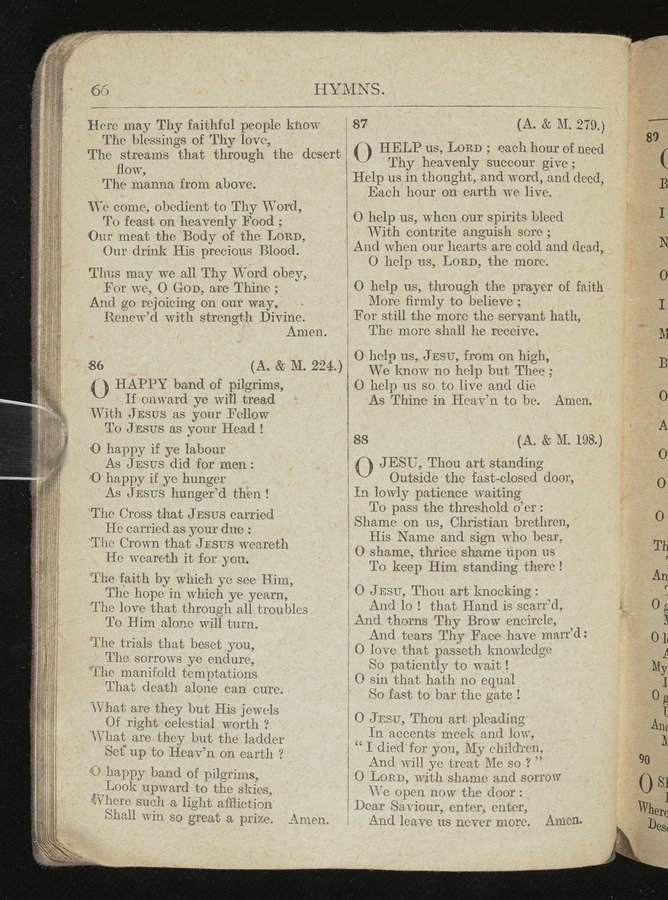 66
HYMNS.
Here may Thy faithful people know
The blessings of Thy love,
The streams that through the desert
flow,
The manna from above.
We come, obedient to Thy Word,
To feast on heavenly Food ;
Our meat the Body of the LORD,
Our drink His precious Blood.
Thus may we all Thy Word obey,
For we, O GOD, are Thine ;
And go rejoicing on our way,
Renew'd with strength Divine.
Amen.
86 (A. & M. 224.)
O HAPPY band of pilgrims,
If onward ye will tread
With JESUS as your Fellow
To JESUS as your Head !
O happy if ye labour
As JESUS did for men :
O happy if ye hunger
As JESUS hunger'd then !
The Cross that JESUS carried
He carried as your due :
The Crown that JESUS weareth
He weareth it for you.
The faith by which ye see Him,
The hope in which ye yearn,
The love that through all troubles
To Him alone will turn.
The trials that beset you,
The sorrows ye endure,
The manifold temptations
That death alone can cure.
What are they but His jewels
Of right celestial worth ?
What are they but the ladder
Set up to Heav'n on earth ?
O happy band of pilgrims,
Look upward to the skies,
Where such a light affliction
Shall win so great a prize. Amen.
87 (A. & M. 279.)
O HELP us, LORD ; each hour of need
Thy heavenly succour give ;
Help us in thought, and word, and deed,
Each hour on earth we live.
O help us, when our spirits bleed
With contrite anguish sore ;
And when our hearts are cold and dead,
O help us, LORD, the more.
O help us, through the prayer of faith
More firmly to believe ;
For still the more the servant hath,
The more shall he receive.
O help us, JESU, from on high,
We know no help but Thee ;
O help us so to live and die
As Thine in Heav'n to be. Amen.
88 (A. & M. 198.)
O JESU, Thou art standing
Outside the fast-closed door,
In lowly patience waiting
To pass the threshold o'er :
Shame on us, Christian brethren,
His Name and sign who bear,
O shame, thrice shame upon us
To keep Him standing there !
O JESU, Thou art knocking :
And lo ! that Hand is scarr'd,
And thorns Thy Brow encircle,
And tears Thy Face have marr'd :
O love that passeth knowledge
So patiently to wait !
O sin that hath no equal
So fast to bar the gate !
O JESU, Thou art pleading
In accents meek and low,
" I died for you, My children,
And will ye treat Me so ? "
O LORD, with shame and sorrow
We open now the door :
Dear Saviour, enter, enter,
And leave us never more. Amen.
89
I
O
I
O
A
O
O
O
My
90
O
Where